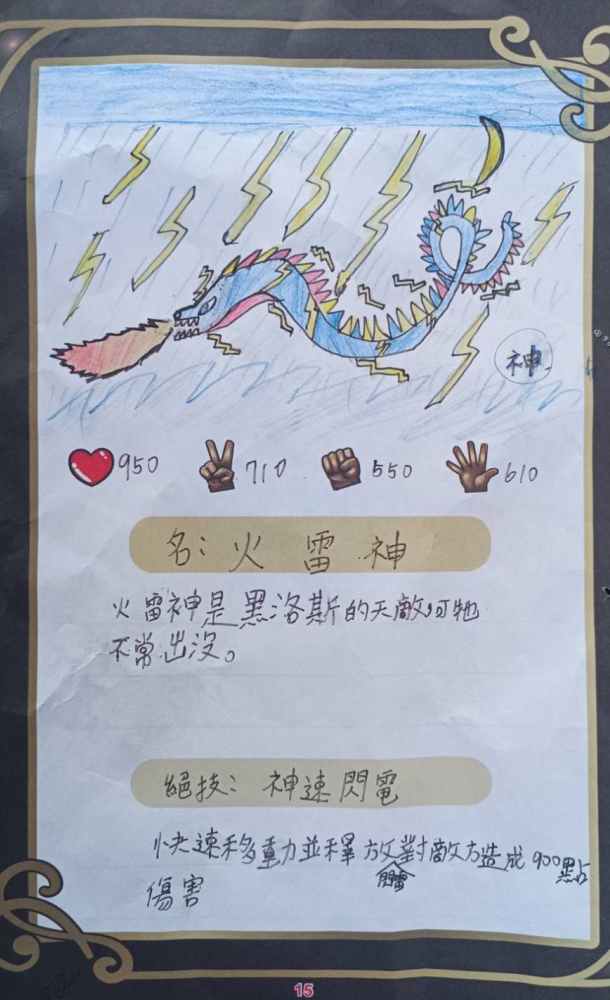 神
950 710 550 610
名：火雷神
火雷神是黑洛斯的天敵，可牠
不常出沒。
絕技：神速閃電
快速移動並釋放閃電對敵方造成900點
傷害
15